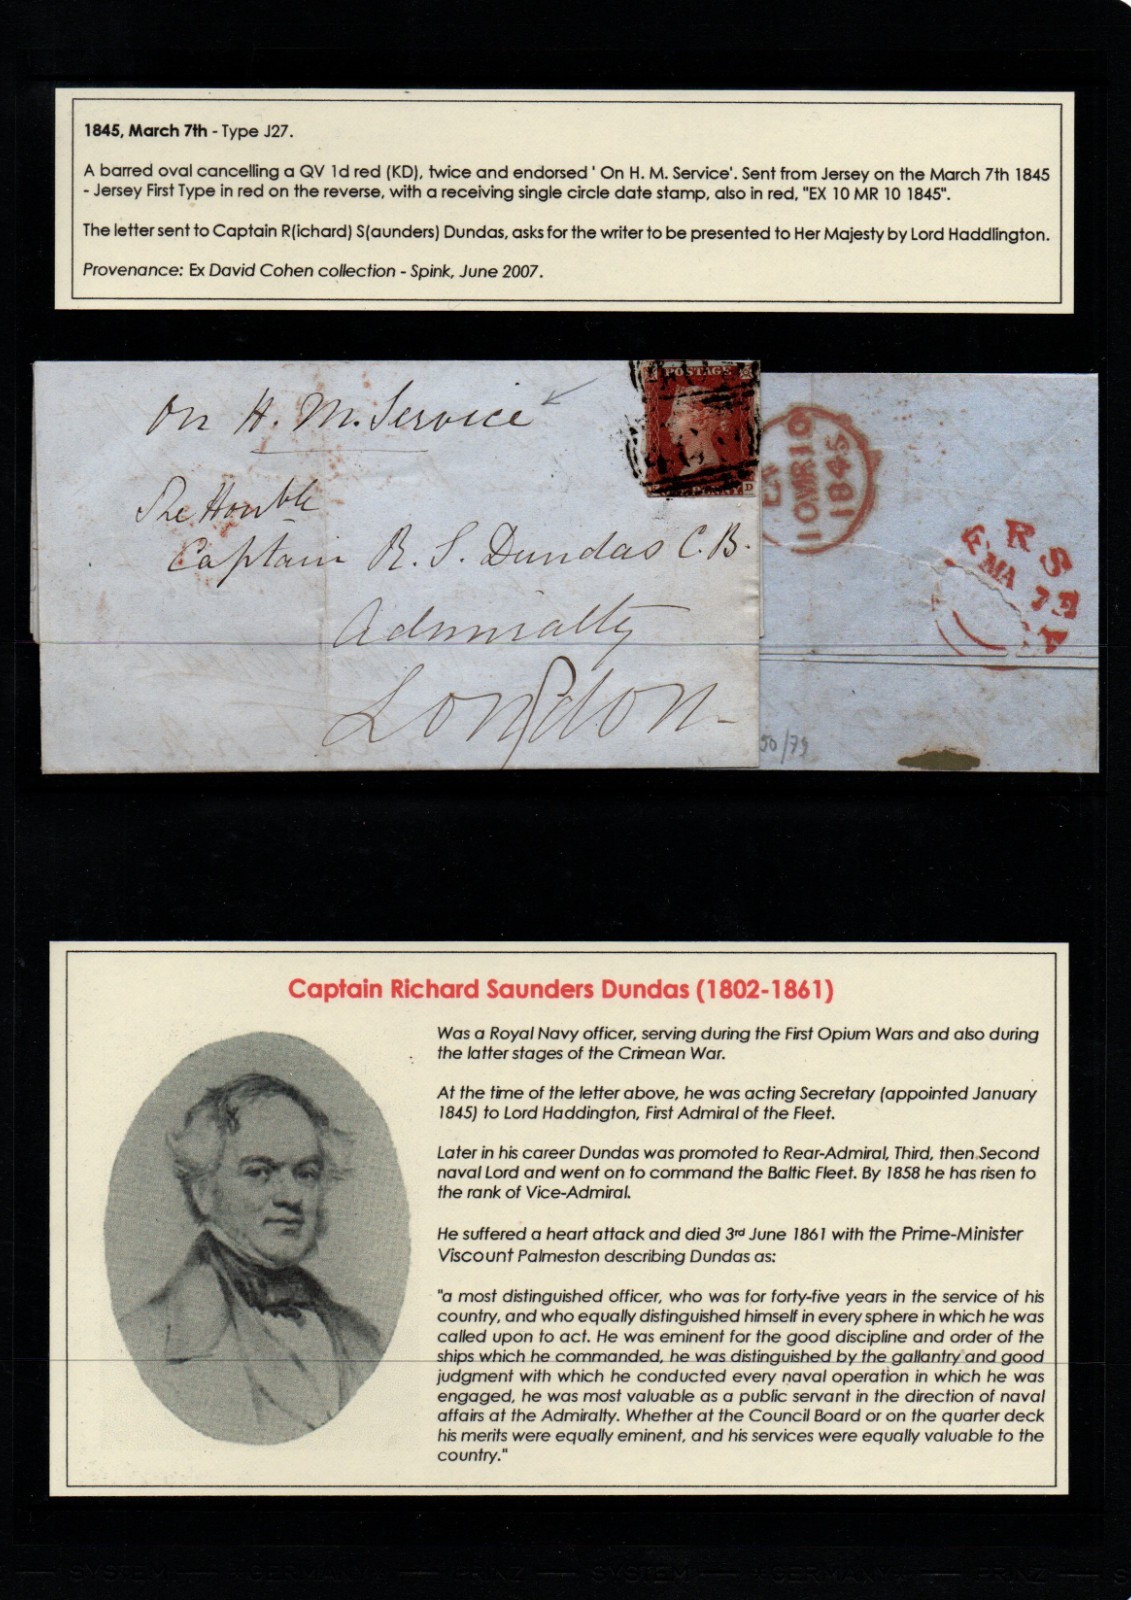 1845, March 7th - Type J27.
A barred oval cancelling a QV 1d red (KD), twice and endorsed ' On H. M. Service'. Sent from Jersey on the March 7th 1845
- Jersey First Type in red on the reverse, with a receiving single circle date stamp, also in red, "EX 10 MR 10 1845".
The letter sent to Captain R(ichard) S(aunders) Dundas, asks for the writer to be presented to Her Majesty by Lord Haddlington.
Provenance: Ex David Cohen collection - Spink, June 2007.
On H. M. Service
The Honble
Captain R. S. Dundas C.B.
Admiralty
London
POSTAGE
PENNY D
10 MR 10
1845
ERSE
MA 7
50/79
Captain Richard Saunders Dundas (1802-1861)
Was a Royal Navy officer, serving during the First Opium Wars and also during
the latter stages of the Crimean War.
At the time of the letter above, he was acting Secretary (appointed January
1845) to Lord Haddington, First Admiral of the Fleet.
Later in his career Dundas was promoted to Rear-Admiral, Third, then Second
naval Lord and went on to command the Baltic Fleet. By 1858 he has risen to
the rank of Vice-Admiral.
He suffered a heart attack and died 3rd June 1861 with the Prime-Minister
Viscount Palmeston describing Dundas as:
"a most distinguished officer, who was for forty-five years in the service of his
country, and who equally distinguished himself in every sphere in which he was
called upon to act. He was eminent for the good discipline and order of the
ships which he commanded, he was distinguished by the gallantry and good
judgment with which he conducted every naval operation in which he was
engaged, he was most valuable as a public servant in the direction of naval
affairs at the Admiralty. Whether at the Council Board or on the quarter deck
his merits were equally eminent, and his services were equally valuable to the
country."
SYSTEM GERMANY PRINZ SYSTEM GERMANY PRINZ